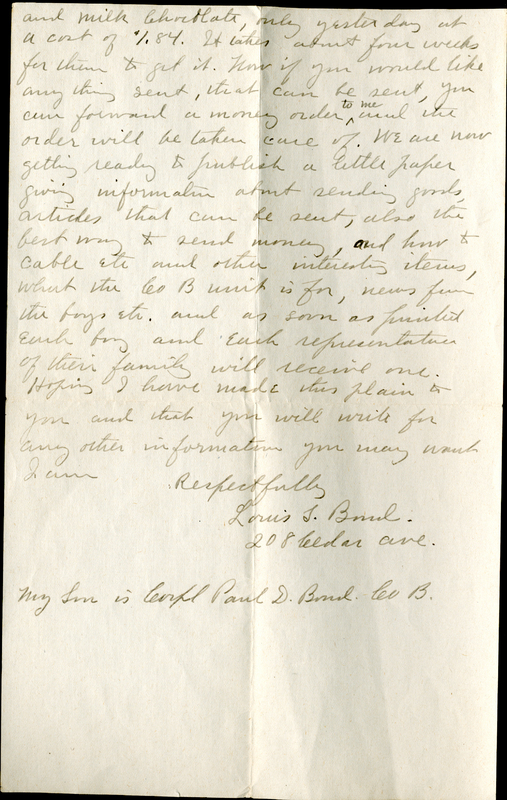 and milk chocolate, only yesterday at
a cost of $1.84. It takes about four weeks
for them to get it. Now if you would like
any thing sent, that can be sent, you
can forward a money order, to me and the
order will be taken care of. We are now
getting ready to publish a little paper
giving information about sending goods,
articles that can be sent, also the
best way to send money, and how to
cable etc and other interesting items,
what the Co B unit is for, news from
the boys etc. and as soon as printed
Each boy and Each representative
of their family will receive one.
Hoping I have made this plain to
you and that you will write for
any other information you may want
I am
Respectfully
Louis S. Bond.
208 Cedar ave.
My Son is Corpl Paul D. Bond. Co B.